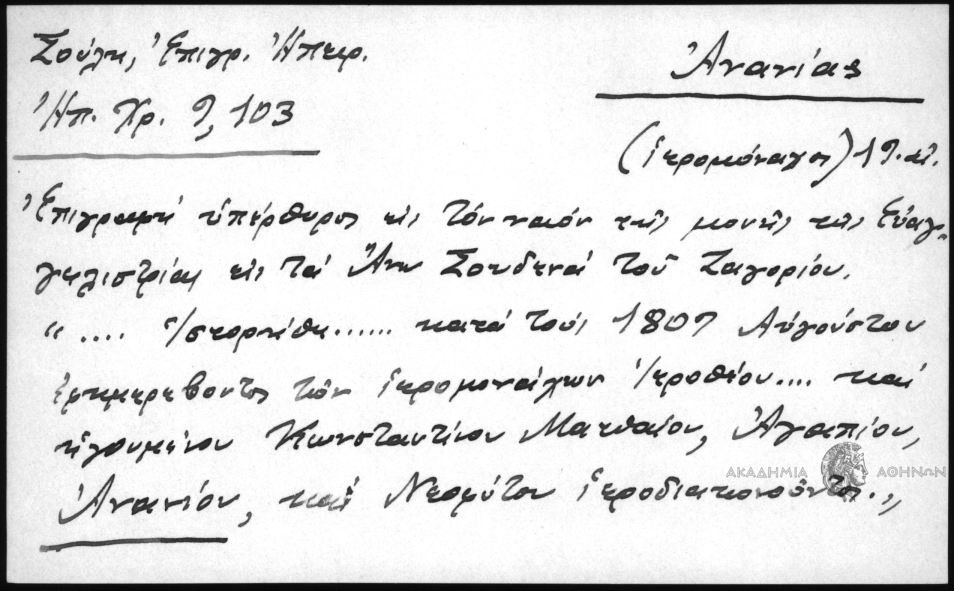 Σούλη, Ἐπιγρ. Ἠπειρ.
Ἠπ. Χρ. 9, 103
Ἀνανίας
(ἱερομόναχος) 19. αἰ.
Ἐπιγραφή ὑπέρθυρος εἰς τόν ναόν τῆς μονῆς τῆς Εὐαγ-
γελιστρίας εἰς τά Ἄνω Σουδενά τοῦ Ζαγορίου.
".... Ἱστορήθη...... κατά τούς 1807 Αὐγούστου
ἐφημερεβοντος τῶν ἱερομονάχων Ἱεροθέου.... καί
ἡγουμένου Κωνσταντίνου Ματθαίου, Ἀγαπίου,
Ἀνανίου, καί Νεοφύτου ἱεροδιακονοῦντος.,,
ΑΚΑΔΗΜΙΑ ΑΘΗΝΩΝ